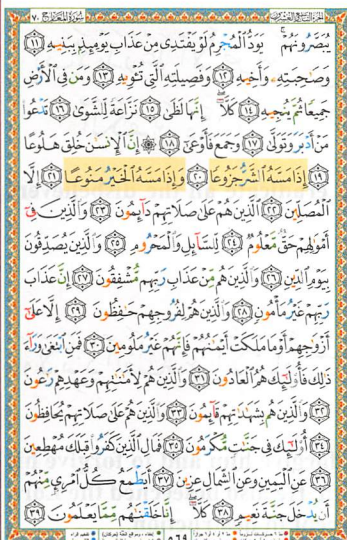 ٧٠
يُبَصَّرُونَهُمْ ۚ يَوَدُّ ٱلْمُجْرِمُ لَوْ يَفْتَدِى مِنْ عَذَابِ يَوْمِئِذٍۭ بِبَنِيهِ ١١
وَصَٰحِبَتِهِۦ وَأَخِيهِ ١٢ وَفَصِيلَتِهِ ٱلَّتِى تُـْٔوِيهِ ١٣ وَمَن فِى ٱلْأَرْضِ
جَمِيعًا ثُمَّ يُنجِيهِ ١٤ كَلَّآ ۖ إِنَّهَا لَظَىٰ ١٥ نَزَّاعَةً لِّلشَّوَىٰ ١٦ تَدْعُوا۟
مَنْ أَدْبَرَ وَتَوَلَّىٰ ١٧ وَجَمَعَ فَأَوْعَىٰٓ ١٨ ۞ إِنَّ ٱلْإِنسَٰنَ خُلِقَ هَلُوعًا
١٩ إِذَا مَسَّهُ ٱلشَّرُّ جَزُوعًا ٢٠ وَإِذَا مَسَّهُ ٱلْخَيْرُ مَنُوعًا ٢١ إِلَّا
ٱلْمُصَلِّينَ ٢٢ ٱلَّذِينَ هُمْ عَلَىٰ صَلَاتِهِمْ دَآئِمُونَ ٢٣ وَٱلَّذِينَ فِىٓ
أَمْوَٰلِهِمْ حَقٌّ مَّعْلُومٌ ٢٤ لِّلسَّآئِلِ وَٱلْمَحْرُومِ ٢٥ وَٱلَّذِينَ يُصَدِّقُونَ
بِيَوْمِ ٱلدِّينِ ٢٦ وَٱلَّذِينَ هُم مِّنْ عَذَابِ رَبِّهِم مُّشْفِقُونَ ٢٧ إِنَّ عَذَابَ
رَبِّهِمْ غَيْرُ مَأْمُونٍ ٢٨ وَٱلَّذِينَ هُمْ لِفُرُوجِهِمْ حَٰفِظُونَ ٢٩ إِلَّا عَلَىٰٓ
أَزْوَٰجِهِمْ أَوْ مَا مَلَكَتْ أَيْمَٰنُهُمْ فَإِنَّهُمْ غَيْرُ مَلُومِينَ ٣٠ فَمَنِ ٱبْتَغَىٰ وَرَآءَ
ذَٰلِكَ فَأُو۟لَٰٓئِكَ هُمُ ٱلْعَادُونَ ٣١ وَٱلَّذِينَ هُمْ لِأَمَٰنَٰتِهِمْ وَعَهْدِهِمْ رَٰعُونَ
٣٢ وَٱلَّذِينَ هُم بِشَهَٰدَٰتِهِمْ قَآئِمُونَ ٣٣ وَٱلَّذِينَ هُمْ عَلَىٰ صَلَاتِهِمْ يُحَافِظُونَ
٣٤ أُو۟لَٰٓئِكَ فِى جَنَّٰتٍ مُّكْرَمُونَ ٣٥ فَمَالِ ٱلَّذِينَ كَفَرُوا۟ قِبَلَكَ مُهْطِعِينَ
٣٦ عَنِ ٱلْيَمِينِ وَعَنِ ٱلشِّمَالِ عِزِينَ ٣٧ أَيَطْمَعُ كُلُّ ٱمْرِئٍ مِّنْهُمْ
أَن يُدْخَلَ جَنَّةَ نَعِيمٍ ٣٨ كَلَّآ ۖ إِنَّا خَلَقْنَٰهُم مِّمَّا يَعْلَمُونَ ٣٩
٥٦٩